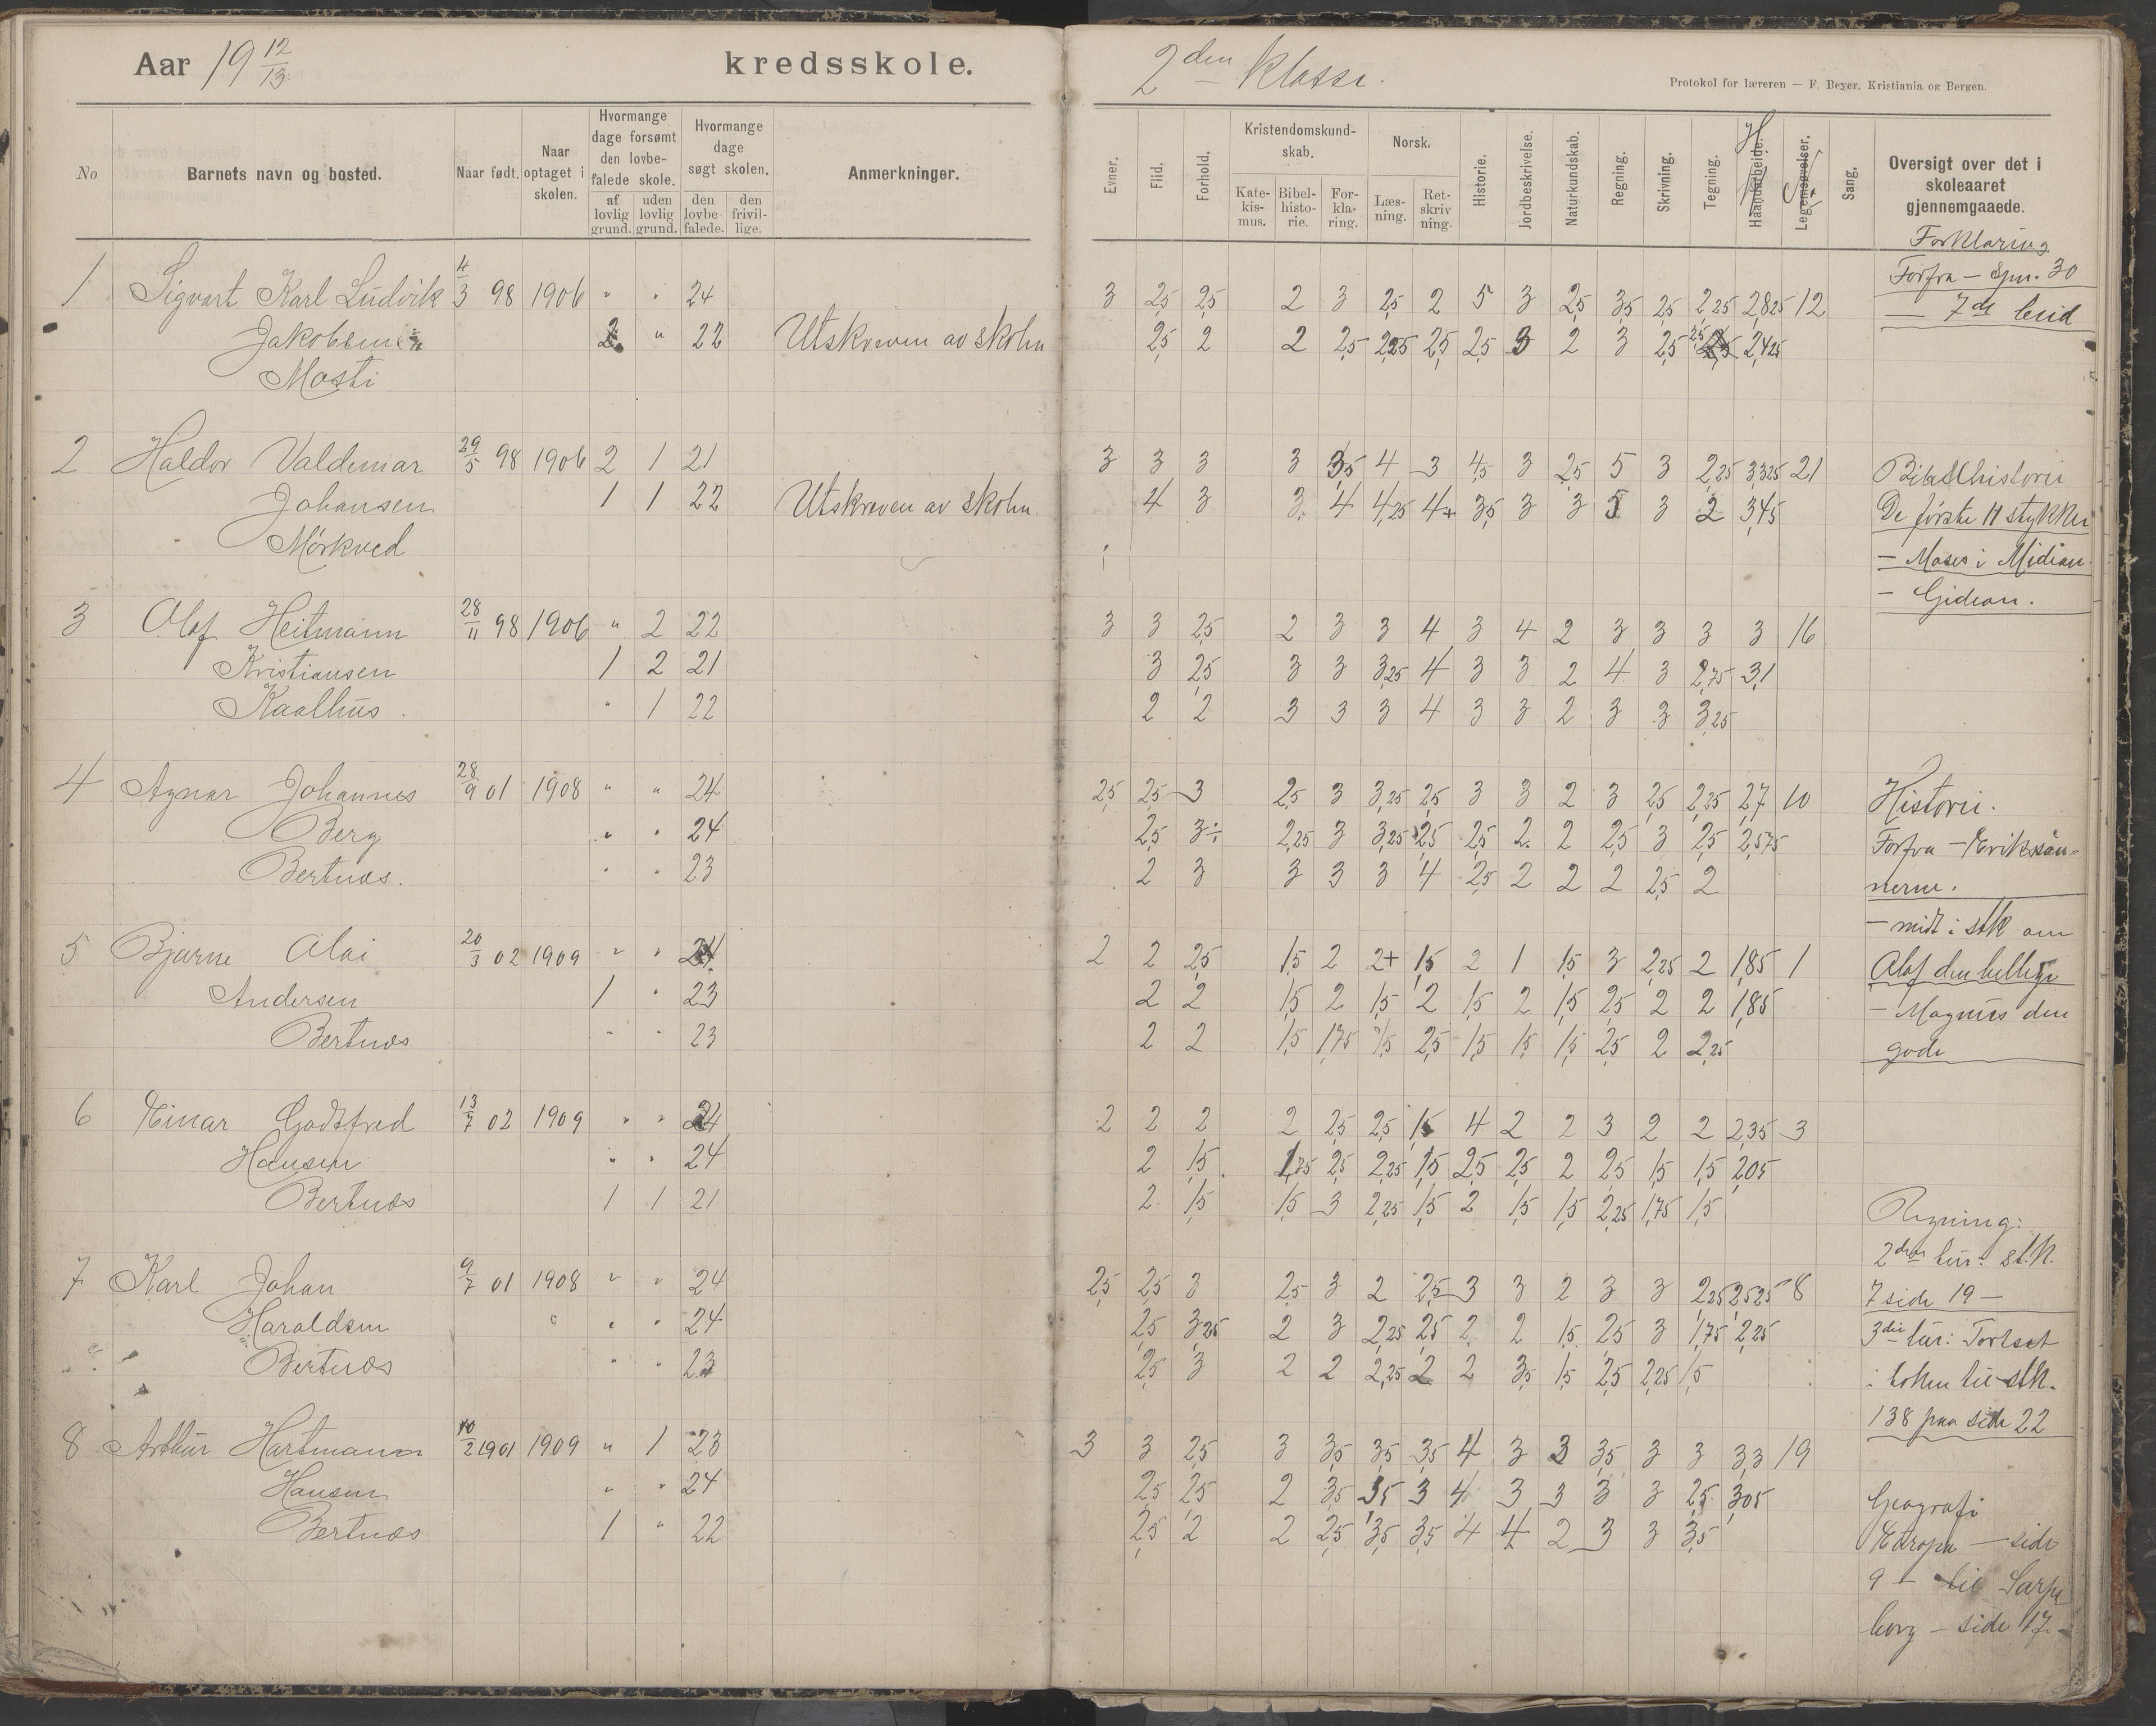 Aar 19 12/13 kredsskole. 2den Klasse.
Protokol for læreren — F. Beyer, Kristiania og Bergen.
No
Barnets navn og bosted.
Naar født.
Naar optaget i skolen.
Hvormange dage forsømt den lovbefalede skole.
af lovlig grund.
uden lovlig grund.
Hvormange dage søgt skolen.
den lovbefalede.
den frivillige.
Anmerkninger.
Evner.
Flid.
Forhold.
Kristendomskundskab.
Katekismus.
Bibelhistorie.
Forklaring.
Norsk.
Læsning.
Retskrivning.
Historie.
Jordbeskrivelse.
Naturkundskab.
Regning.
Skrivning.
Tegning.
Haandarbeide.
Legemsøvelser.
Sang.
Oversigt over det i skoleaaret gjennemgaaede.
1 Sigvart Karl Ludvik 4/3 98 1906 " " 24 3 2,5 2,5 2 3 2,5 2 5 3 2,5 3,5 2,5 2,25 2,825 12
Jakobsen 2 " 22 Utskreven av skolen 2,5 2 2 2,5 2,25 2,5 2,5 3 2 3 2,5 2,425
Mosti
2 Haldor Valdemar 29/5 98 1906 2 1 21 3 3 3 3 3,5 4 3 4,5 3 2,5 5 3 2,25 3,325 21
Johansen 1 1 22 Utskreven av skolen. 4 3 3 4 4,25 4+ 3,5 3 3 5 3 2 3,45
Mørkved
3 Olaf Heitmann 28/11 98 1906 " 2 22 3 3 2,5 2 3 3 4 3 4 2 3 3 3 3 16
Kristiansen 1 2 21 3 2,5 3 3 3,25 4 3 3 2 4 3 2,75 3,1
Kaalhus. " 1 22 2 2 3 3 3 4 3 3 2 3 3 3,25
4 Agnar Johannes 28/9 01 1908 " " 24 2,5 2,5 3 2,5 3 3,25 2,5 3 3 2 3 2,5 2,25 2,7 10
Berg " " 24 2,5 3÷ 2,25 3 3,25 2,5 2,5 2 2 2,5 3 2,5 2,575
Bertnæs. " " 23 2 3 3 3 3 4 2,5 2 2 2 2,5 2
5 Bjarne Olai 20/3 02 1909 " " 24 2 2 2,5 1,5 2 2+ 1,5 2 1 1,5 3 2,25 2 1,85 1
Andersen 1 " 23 2 2 1,5 2 1,5 2 1,5 2 1,5 2,5 2 2 1,85
Bertnæs " " 23 2 2 1,5 1,75 1,5 2,5 1,5 1,5 1,5 2,5 2 2,25
6 Einar Godtfred 13/7 02 1909 " " 24 2 2 2 2 2,5 2,5 1,5 4 2 2 3 2 2 2,35 3
Hansen " " 24 2 1,5 1,75 2,5 2,25 1,5 2,5 2,5 2 2,5 1,5 1,5 2,05
Bertnæs 1 1 21 2 1,5 1,5 3 2,25 1,5 2 1,5 1,5 2,25 1,75 1,5
7 Karl Johan 9/7 01 1908 " " 24 2,5 2,5 3 2,5 3 2 2,5 3 3 2 3 3 2,25 2,525 8
Haraldsen " " 24 2,5 3,25 2 3 2,25 2,5 2 2 1,5 2,5 3 1,75 2,25
Bertnæs " " 23 2,5 3 2 2 2,25 2 2 3,5 1,5 2,5 2,25 1,5
8 Arthur Hartmann 10/2 1901 1909 " 1 23 3 3 2,5 3 3,5 3,5 3,5 4 3 3 3,5 3 3 3,3 19
Hansen " " 24 2,5 2,5 2 3,5 3,5 3 4 3 3 3 3 2,5 3,05
Bertnæs 1 " 22 2,5 2 2 2,5 3,5 3,5 4 4 2 3 3 3,5
Forklaring
Forfra — Spm. 30
— 7de bud
Bibelhistorie
De første 11 stykker
— Moses i Midian.
— Gideon.
Historie.
Forfra — Erikssønnerne.
— midt i stk om
Olaf den hellige
— Magnus den
gode
Regning:
2den tur: stk.
7 side 19 —
3die tur: Fortsat
i boken til stk.
138 paa side 22
Geografi
Europa — side
9 — til Sarpsborg — side 17